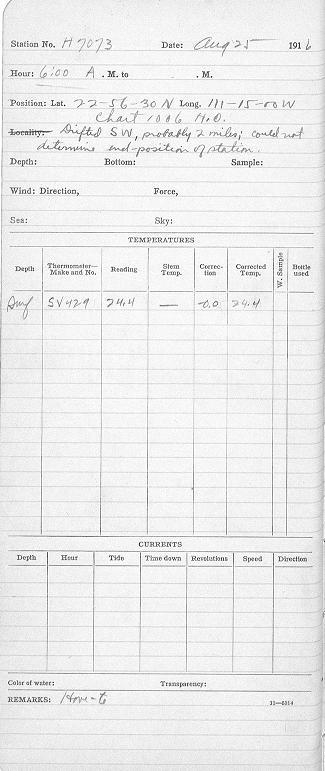 Station No. H7073 Date: Aug 25 1916
Hour: 6:00 A . M. to . M.
Position: Lat. 22-56-30 N Long. 111-15-00 W
Chart 1006 H.O.
Locality: Drifted SW, probably 2 miles; could not
determine end-position of station.
Depth: Bottom: Sample:
Wind: Direction, Force,
Sea: Sky:
TEMPERATURES
Depth Thermometer—Make and No. Reading Stem Temp. Correction Corrected Temp. W. Sample Bottle used
Surf SV429 24.4 — -0.0 24.4
CURRENTS
Depth Hour Tide Time down Revolutions Speed Direction
Color of water: Transparency:
REMARKS: Hove-to 11—6314